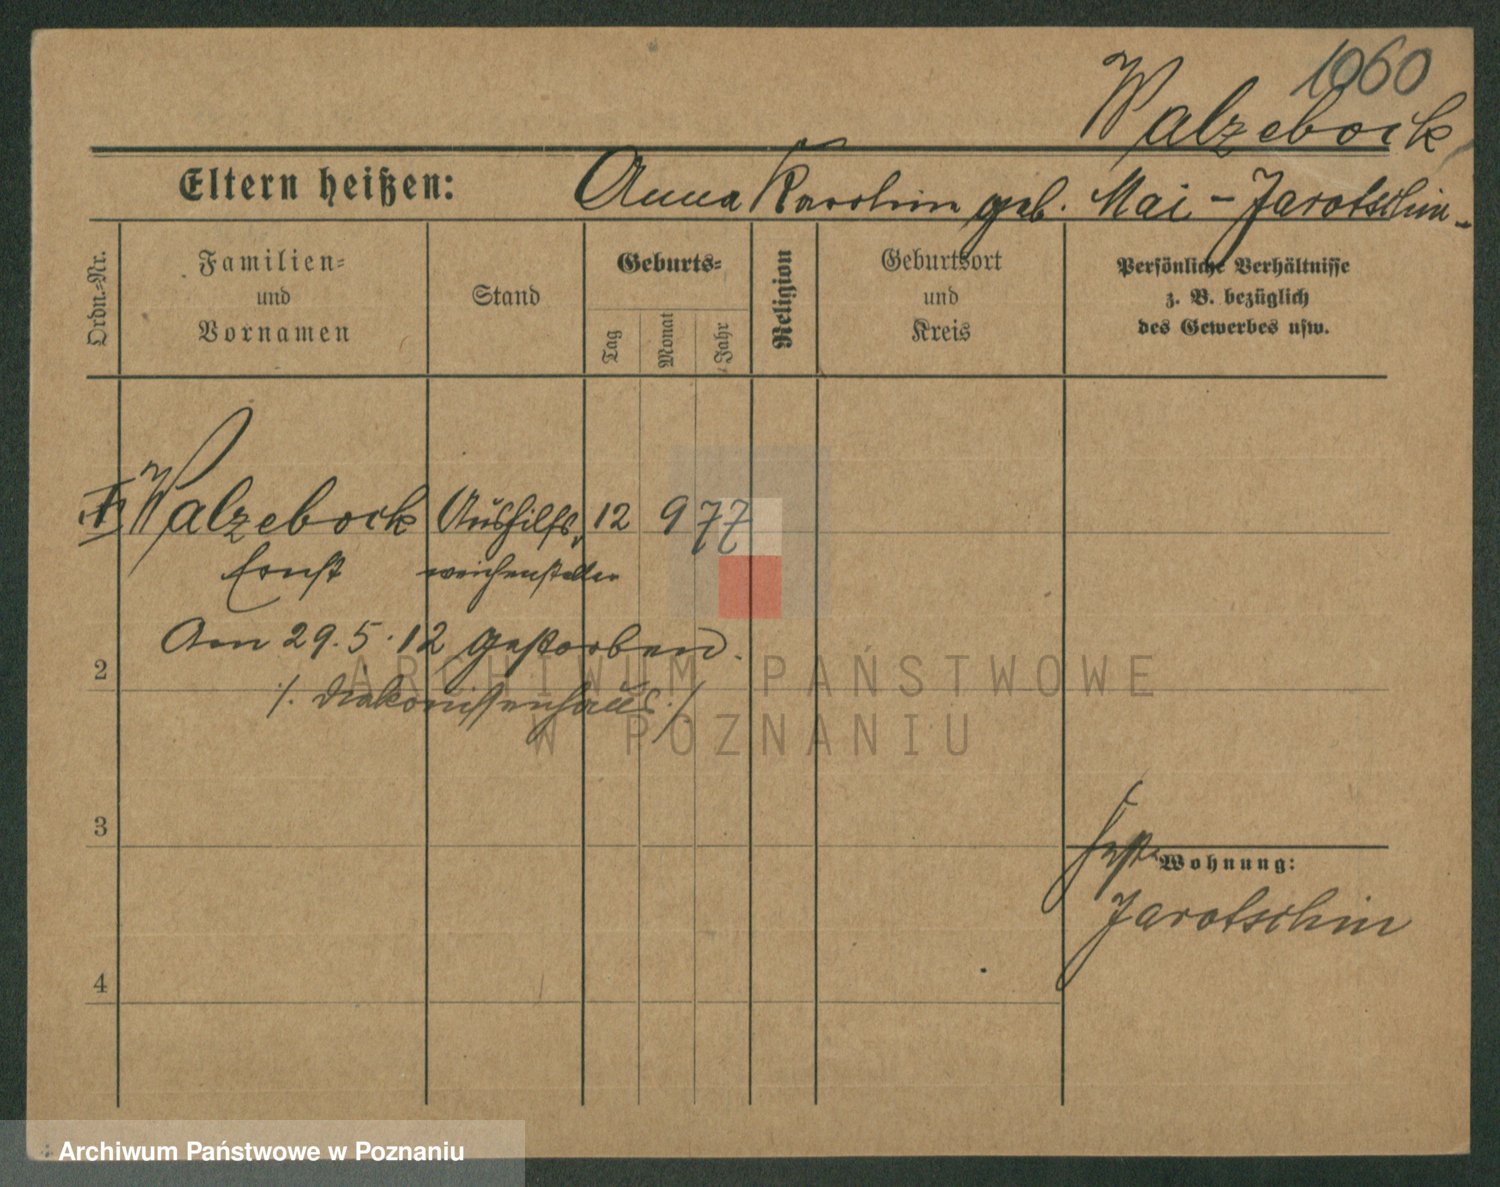 1060
Walzebock
Eltern heißen: Anna Karolin geb. Mai - Jarotschin -
Ordn.=Nr.
Familien=
und
Vornamen
Stand
Geburts=
Tag
Monat
Jahr
Religion
Geburtsort
und
Kreis
Persönliche Verhältnisse
z. B. bezüglich
des Gewerbes usw.
Walzebock Aushilfs 12 9 77
Ernst weichensteller
Am 29. 5. 12 gestorben.
2
/. Diakonissenhaus ./
ARCHIWUM PAŃSTWOWE
W POZNANIU
3
Wohnung:
Jarotschin
4
Archiwum Państwowe w Poznaniu